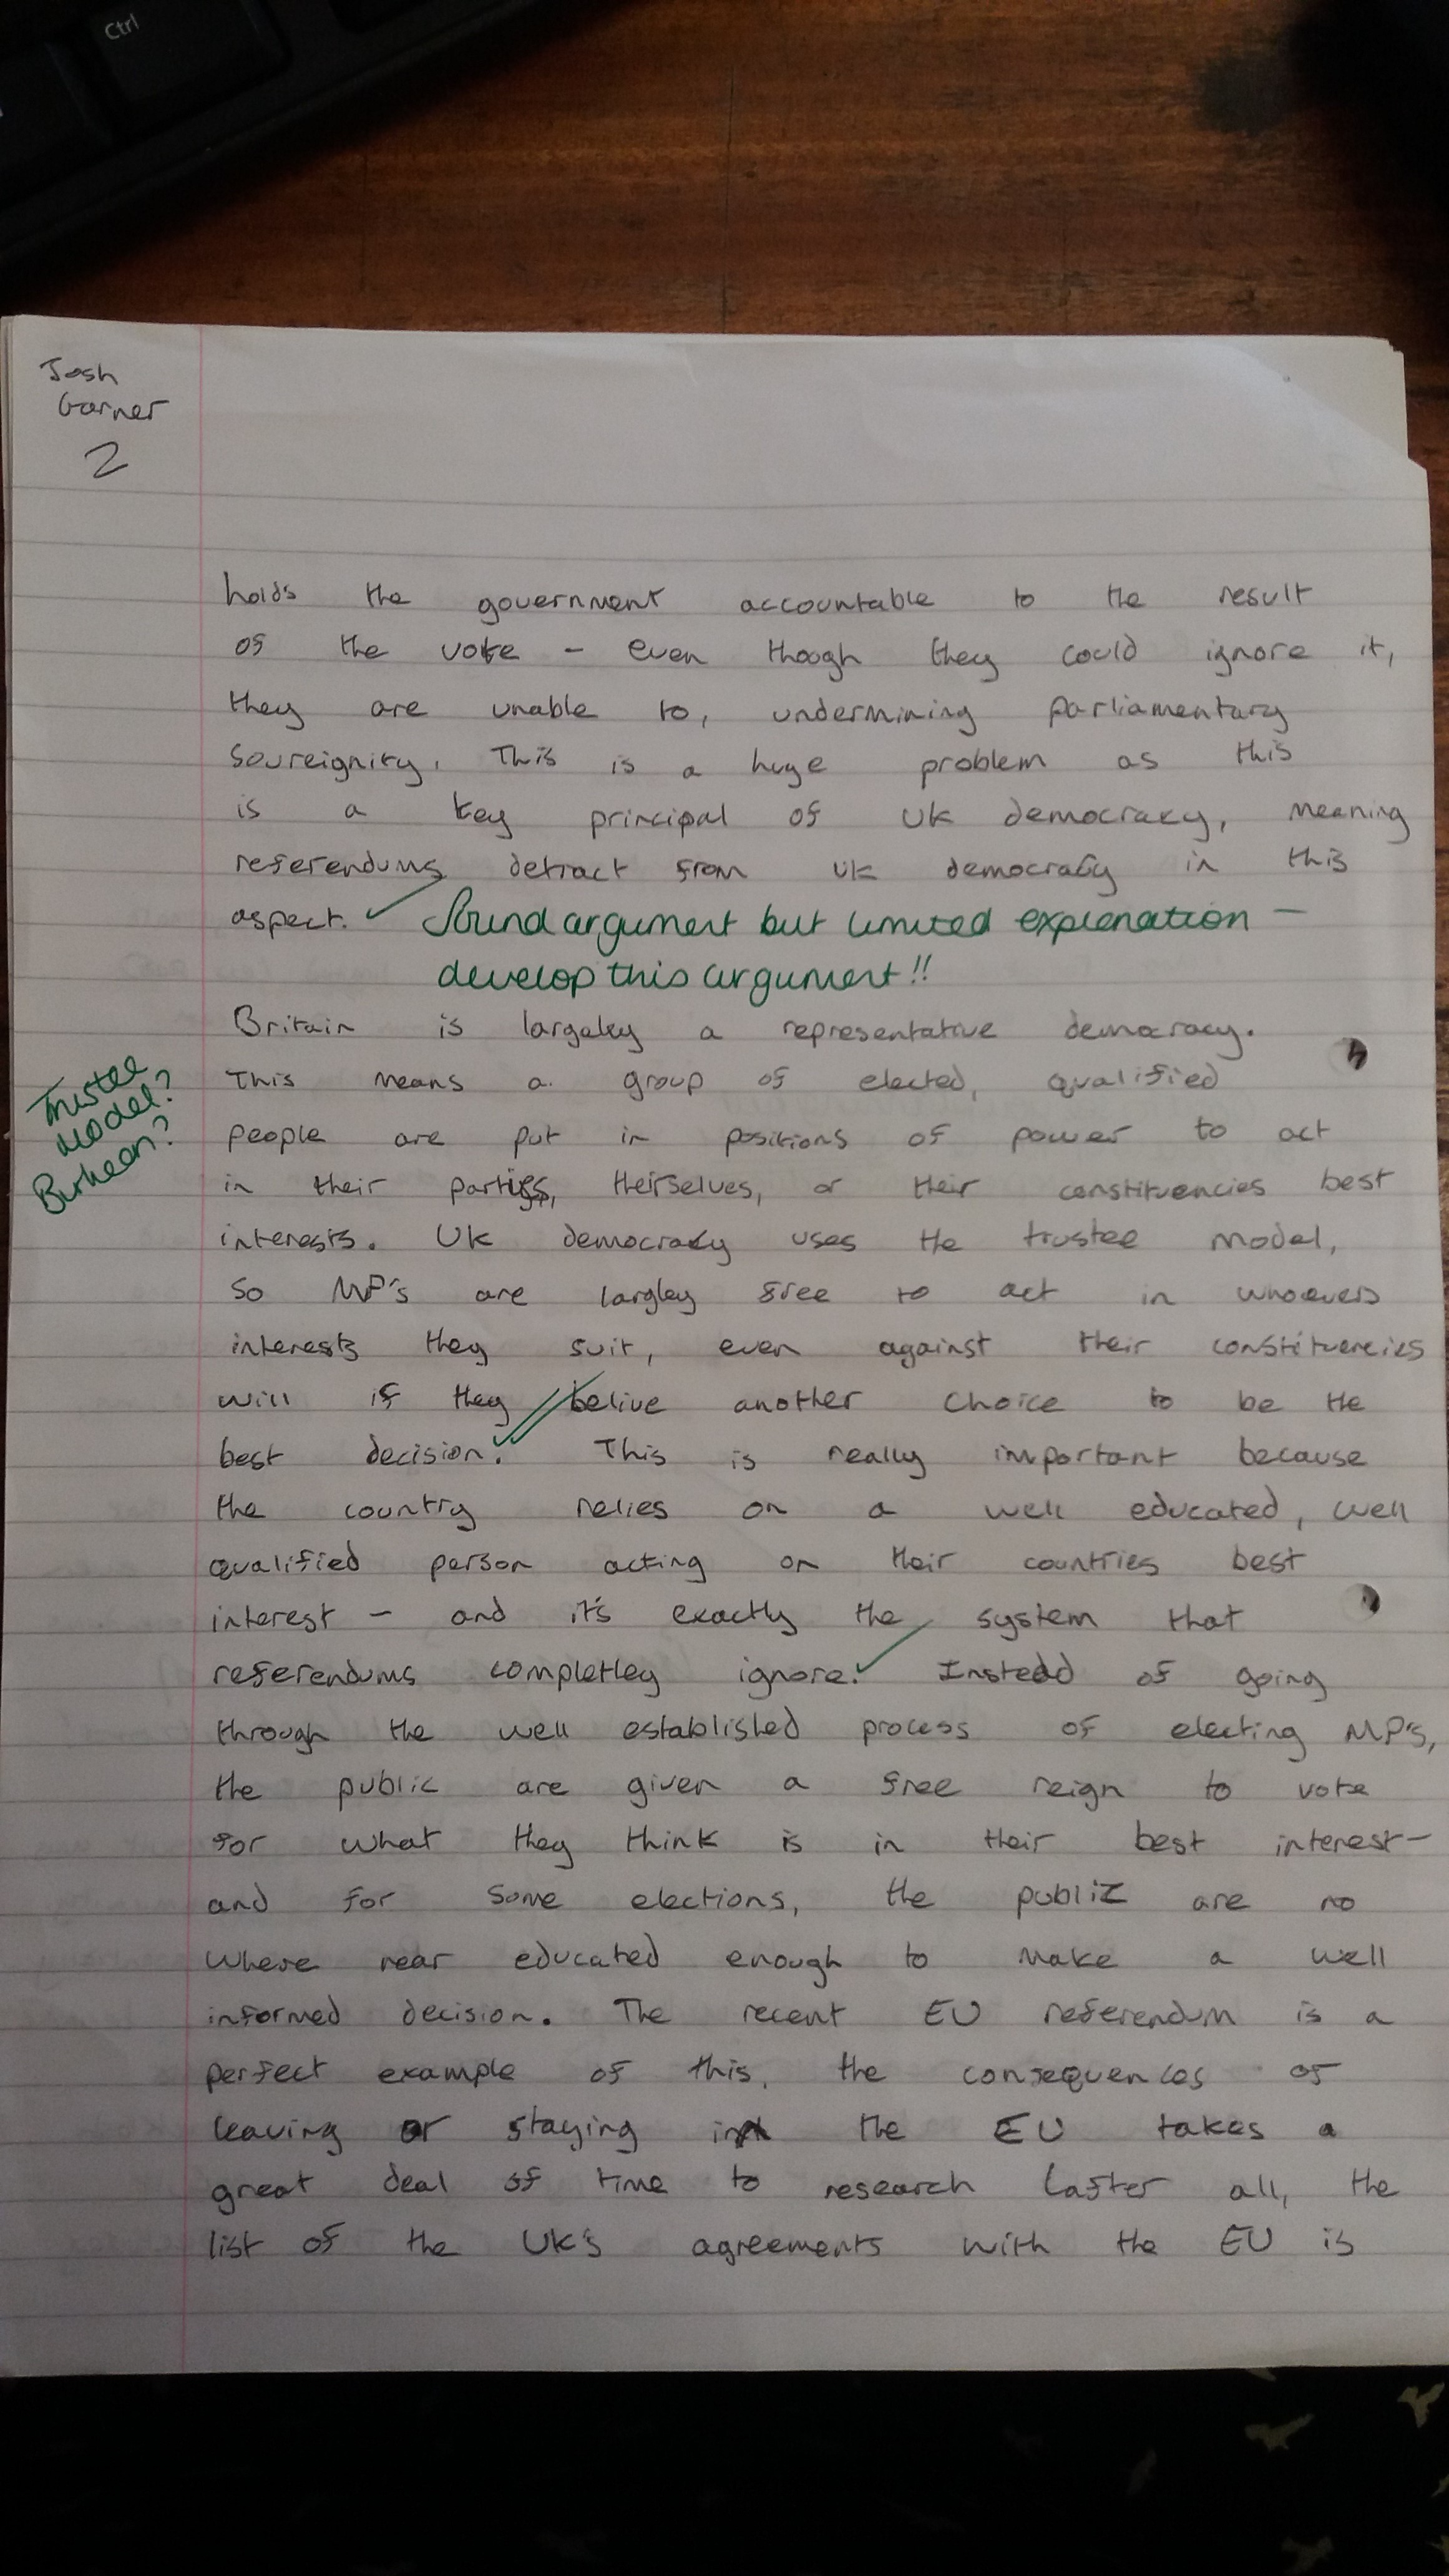 Ctrl
Josh
Garner
2
holds the government accountable to the result
of the vote - even though they could ignore it,
they are unable to, undermining parliamentary
sovreignity. This is a huge problem as this
is a key principal of UK democracy, meaning
referendums detract from UK democracy in this
aspect. Sound argument but limited explanation -
develop this argument!!
Britain is largaley a representative democracy.
Trustee
Model?
Burkean?
This means a group of elected, qualified
people are put in positions of power to act
in their parties, theirselves, or their constituencies best
interests. UK democracy uses the trustee model,
so MP's are largley free to act in whoevers
interests they suit, even against their constituencies
will if they belive another choice to be the
best decision. This is really important because
the country relies on a well educated, well
qualified person acting on their countries best
interest - and it's exactly the system that
referendums completley ignore. Instead of going
through the well established process of electing MP's,
the public are given a free reign to vote
for what they think is in their best interest-
and for some elections, the public are no
where near educated enough to make a well
informed decision. The recent EU referendum is a
perfect example of this, the consequences of
leaving or staying in the EU takes a
great deal of time to research (after all, the
list of the UK's agreements with the EU is